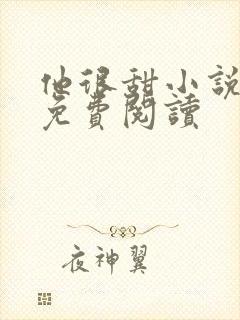 他很甜小說
免費閱讀
夜神翼